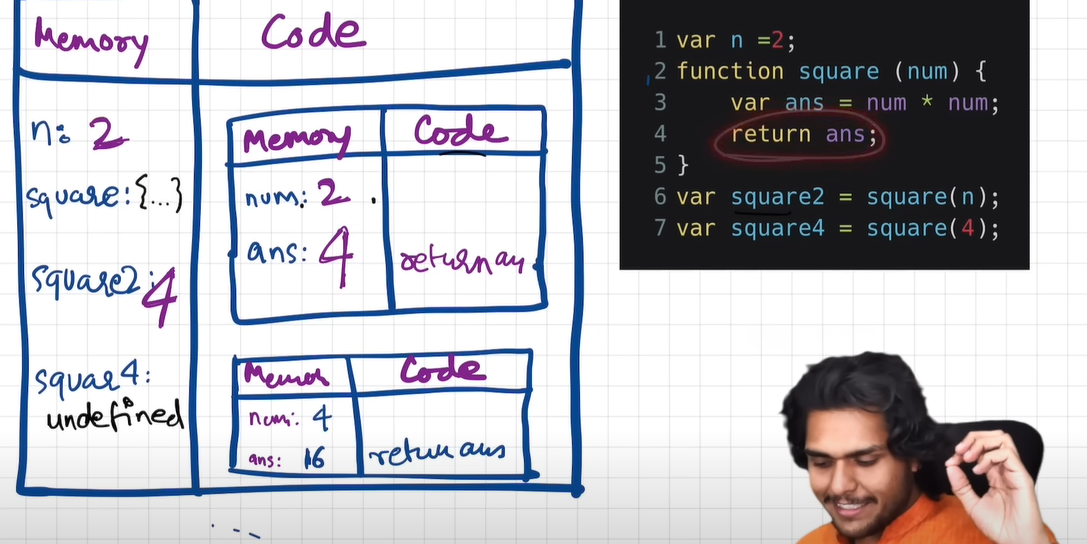 Memory Code
n: 2
square: {...}
square2: 4
squar4:
undefined
Memory Code
num: 2
ans: 4
return an
Memor Code
num: 4
ans: 16
return ans
1 var n =2;
2 function square (num) {
3 var ans = num * num;
4 return ans;
5 }
6 var square2 = square(n);
7 var square4 = square(4);